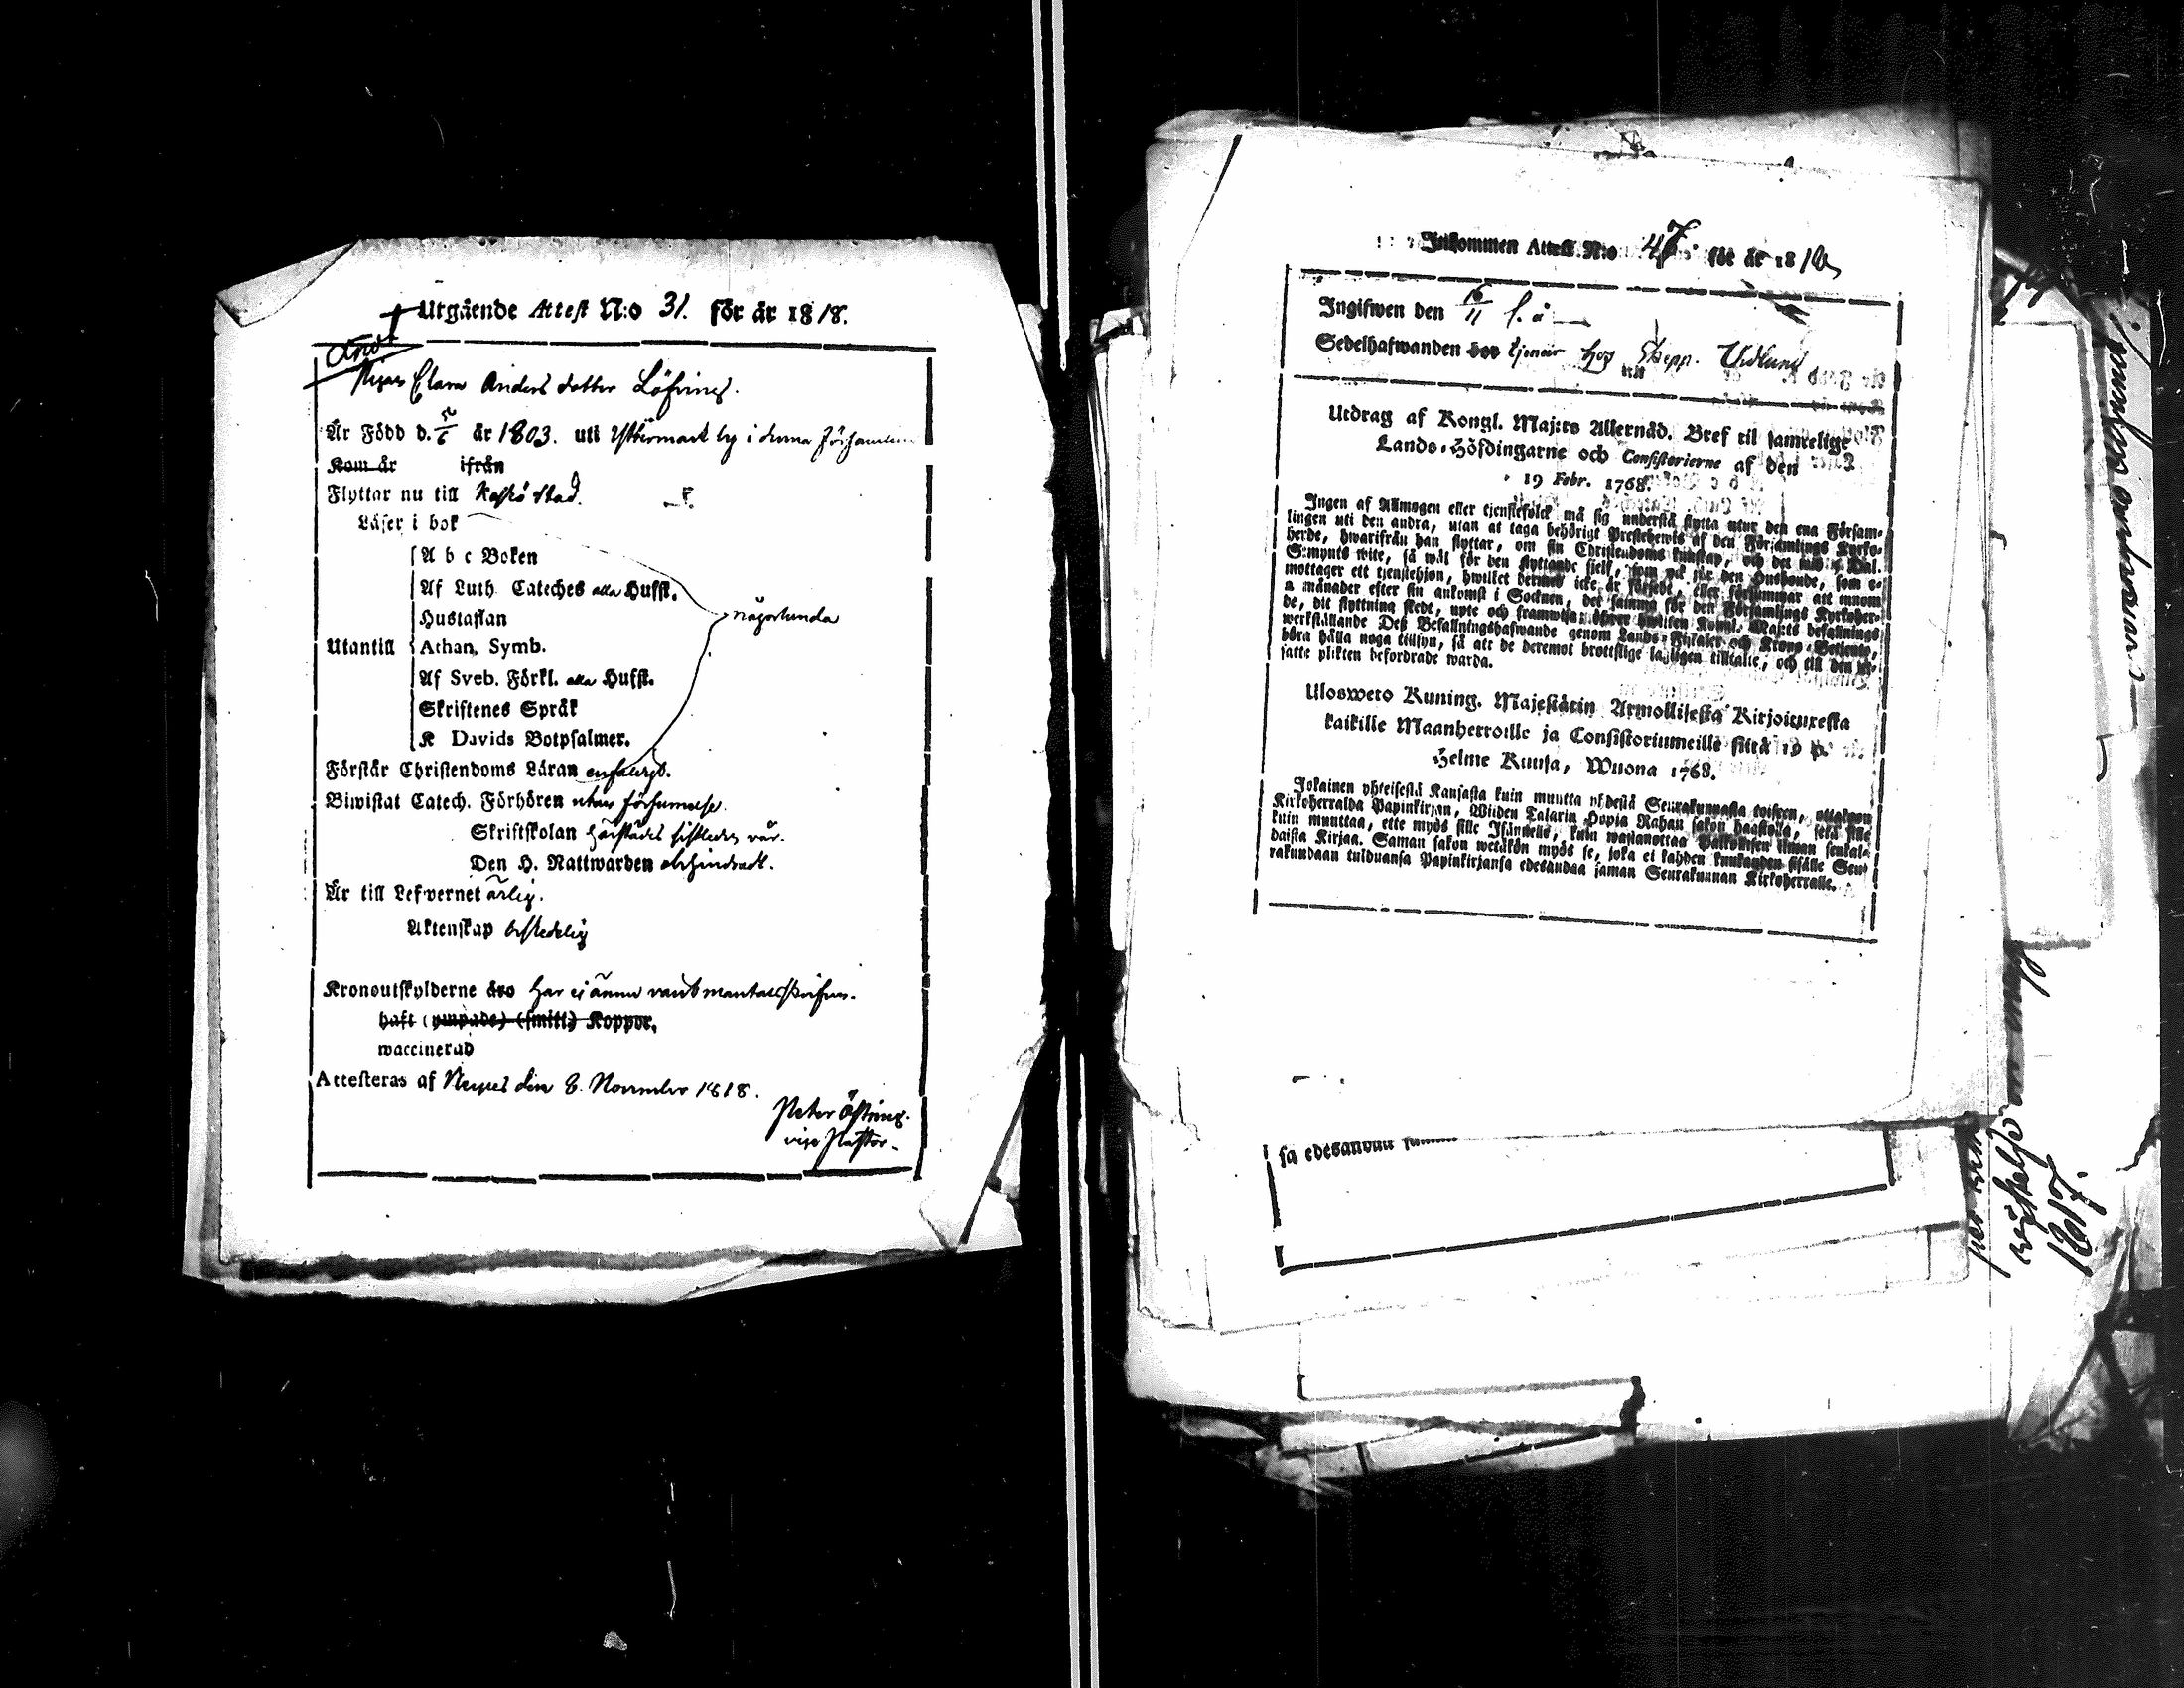 Utgående Attest N:o 31. för år 1818.
Pigan Clara Anders dotter Löfring.
Är Född d. 5/6 år 1803. uti Yttermark by i denna Församling
Kom år ifrån
Flyttar nu till Kaskö stad.
Läser i bok
A b c Boken
Af Luth. Cateches alla Hufst.
Hustaflan
någorlunda
Utantill Athan. Symb.
Af Sveb. Förkl. alla Hufst.
Skriftenes Språk
K Davids Botpsalmer.
Förstår Christendoms Läran enfaldigt.
Biwistat Catech. Förhören utan försummelse.
Skriftskolan härstädes sistleden vår.
Den H. Nattwarden obehindradt.
Är till Lefvernet ärlig.
Äktenskap
Kronoutskylderne äro har ej ännu varit mantalsskrifven.
haft (ympade) (smitt.) Koppor.
waccinerad
Attesteras af Nerpes den 8. November 1818.
Peter Östring.
vice Pastor.
Inkommen Attest. N:o 47. för år 18
Ingifwen den 16/11 s. å
Sedelhafwanden bor tjenar hos Skepp.
Utdrag af Kongl. Maj:ts Allernåd. Bref til samtelige
Lands-Höfdingarne och Consistorierne af den
19 Febr. 1768.
Ingen af Allmogen eller tjenstefolck må sig understå flytta utur den ena Försam-
lingen uti den andra, utan at taga behörigt Prestebewis af den Församlings Kyrko-
herde, hwarifrån han flyttar, om sin Christendoms kunskap, och det wid 5 Dal.
S:mynts wite, så wäl för den flyttande sielf, som ock för den Husbonde, som e-
mottager ett tjenstehjon, hwilket dermed icke är försedt, eller försummar att innom
2 månader efter sin ankomst i Socknen, det samma för den Församlings Kyrkoher-
de, dit flyttning skedt, upte och framwisa; öfwer hwilken Kongl. Maj:ts befallnings
werkställande Deß Befallningshafwande genom Lands-Fiskaler och Krono-Betjente,
böra hålla noga tillsyn, så att de deremot brottslige lagligen tilltalte, och till den ut-
satte plikten befordrade warda.
Uloswero Kuning. Majestätin Armollisesta Kirjoituxesta
kaikille Maanherroille ja Consistoriumeille siitä 19 p.
Helme Kuusa, Wuona 1768.
Jokainen yhteisestä Kansasta kuin muutta yhdestä Seurakunnasta toiseen, ottakoon
Kirkoherralda Papinkirjan, Wiiden Talarin Hopia Rahan sakon haastolla, sekä sille
kuin muuttaa, ette myös sille Isännelle, kuin wastanottaa Palkollisen ilman senkal-
daista Kirjaa. Saman sakon wetäkön myös se, joka ei kahden kuukauden sisälle Seu-
rakundaan tulduansa Papinkirjansa edesandaa saman Seurakunnan Kirkoherralle.
sa edesandaa
1817.